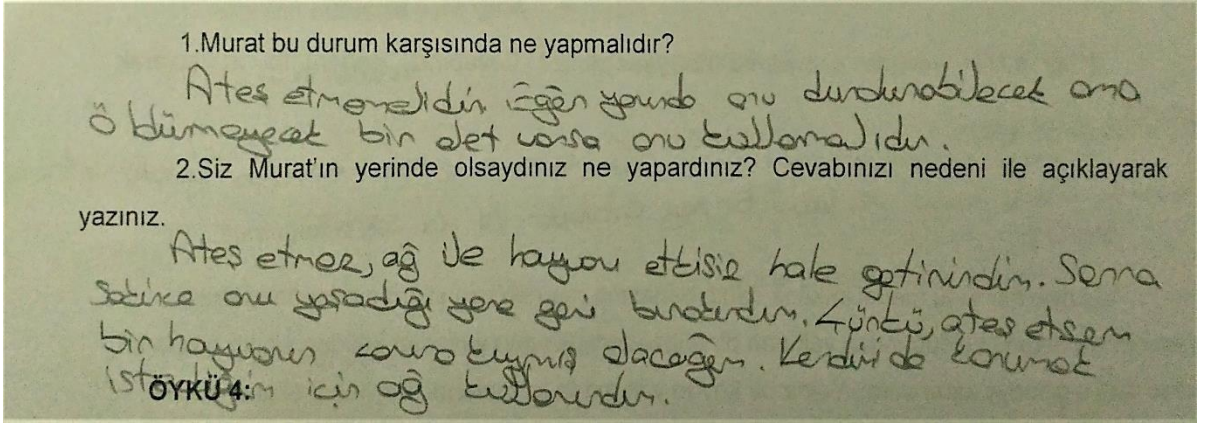 1.Murat bu durum karşısında ne yapmalıdır?
Ateş etmemelidir. Eğer yanında onu durdurabilecek ama
öldürmeyecek bir alet varsa onu kullanmalıdır.
2.Siz Murat'ın yerinde olsaydınız ne yapardınız? Cevabınızı nedeni ile açıklayarak
yazınız.
Ateş etmez, ağ ile hayvanı etkisiz hale getirirdim. Sonra
sakince onu yaşadığı yere geri bırakırdım. Çünkü, ateş etsem
bir hayvanın canına kıymış olacağım. Kendimi de korumak
istediğim için ağ kullanırdım.
ÖYKÜ 4: